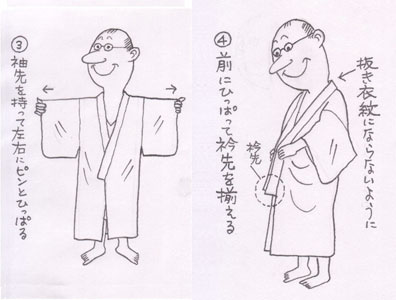 ③
袖先を持って左右にピンとひっぱる
④
前にひっぱって衿先を揃える
衿先
抜き衣紋にならないように